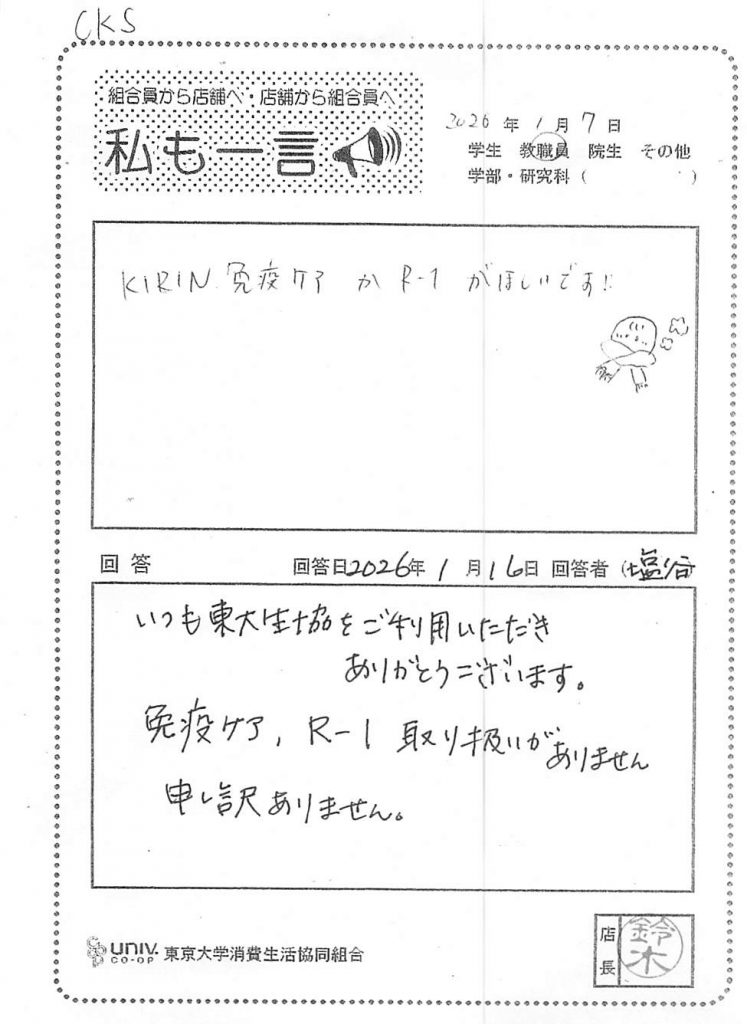 CKS
組合員から店舗へ・店舗から組合員へ
私も一言
2026年1月7日
学生 教職員 院生 その他
学部・研究科( )
KIRIN 免疫ケア か R-1 がほしいです!!
回答 回答日2026年1月16日 回答者(塩谷)
いつも東大生協をご利用いただき
ありがとうございます。
免疫ケア, R-1 取り扱いがありません
申し訳ありません。
UNIV. CO-OP 東京大学消費生活協同組合
店長 鈴木